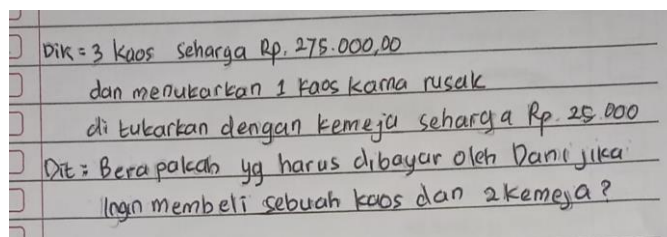 Dik = 3 kaos seharga Rp. 275.000,00
dan menukarkan 1 kaos karna rusak
di tukarkan dengan kemeja seharga Rp. 25.000
Dit : Berapakah yg harus dibayar oleh Dani jika
Ingn membeli sebuah kaos dan 2 kemeja ?